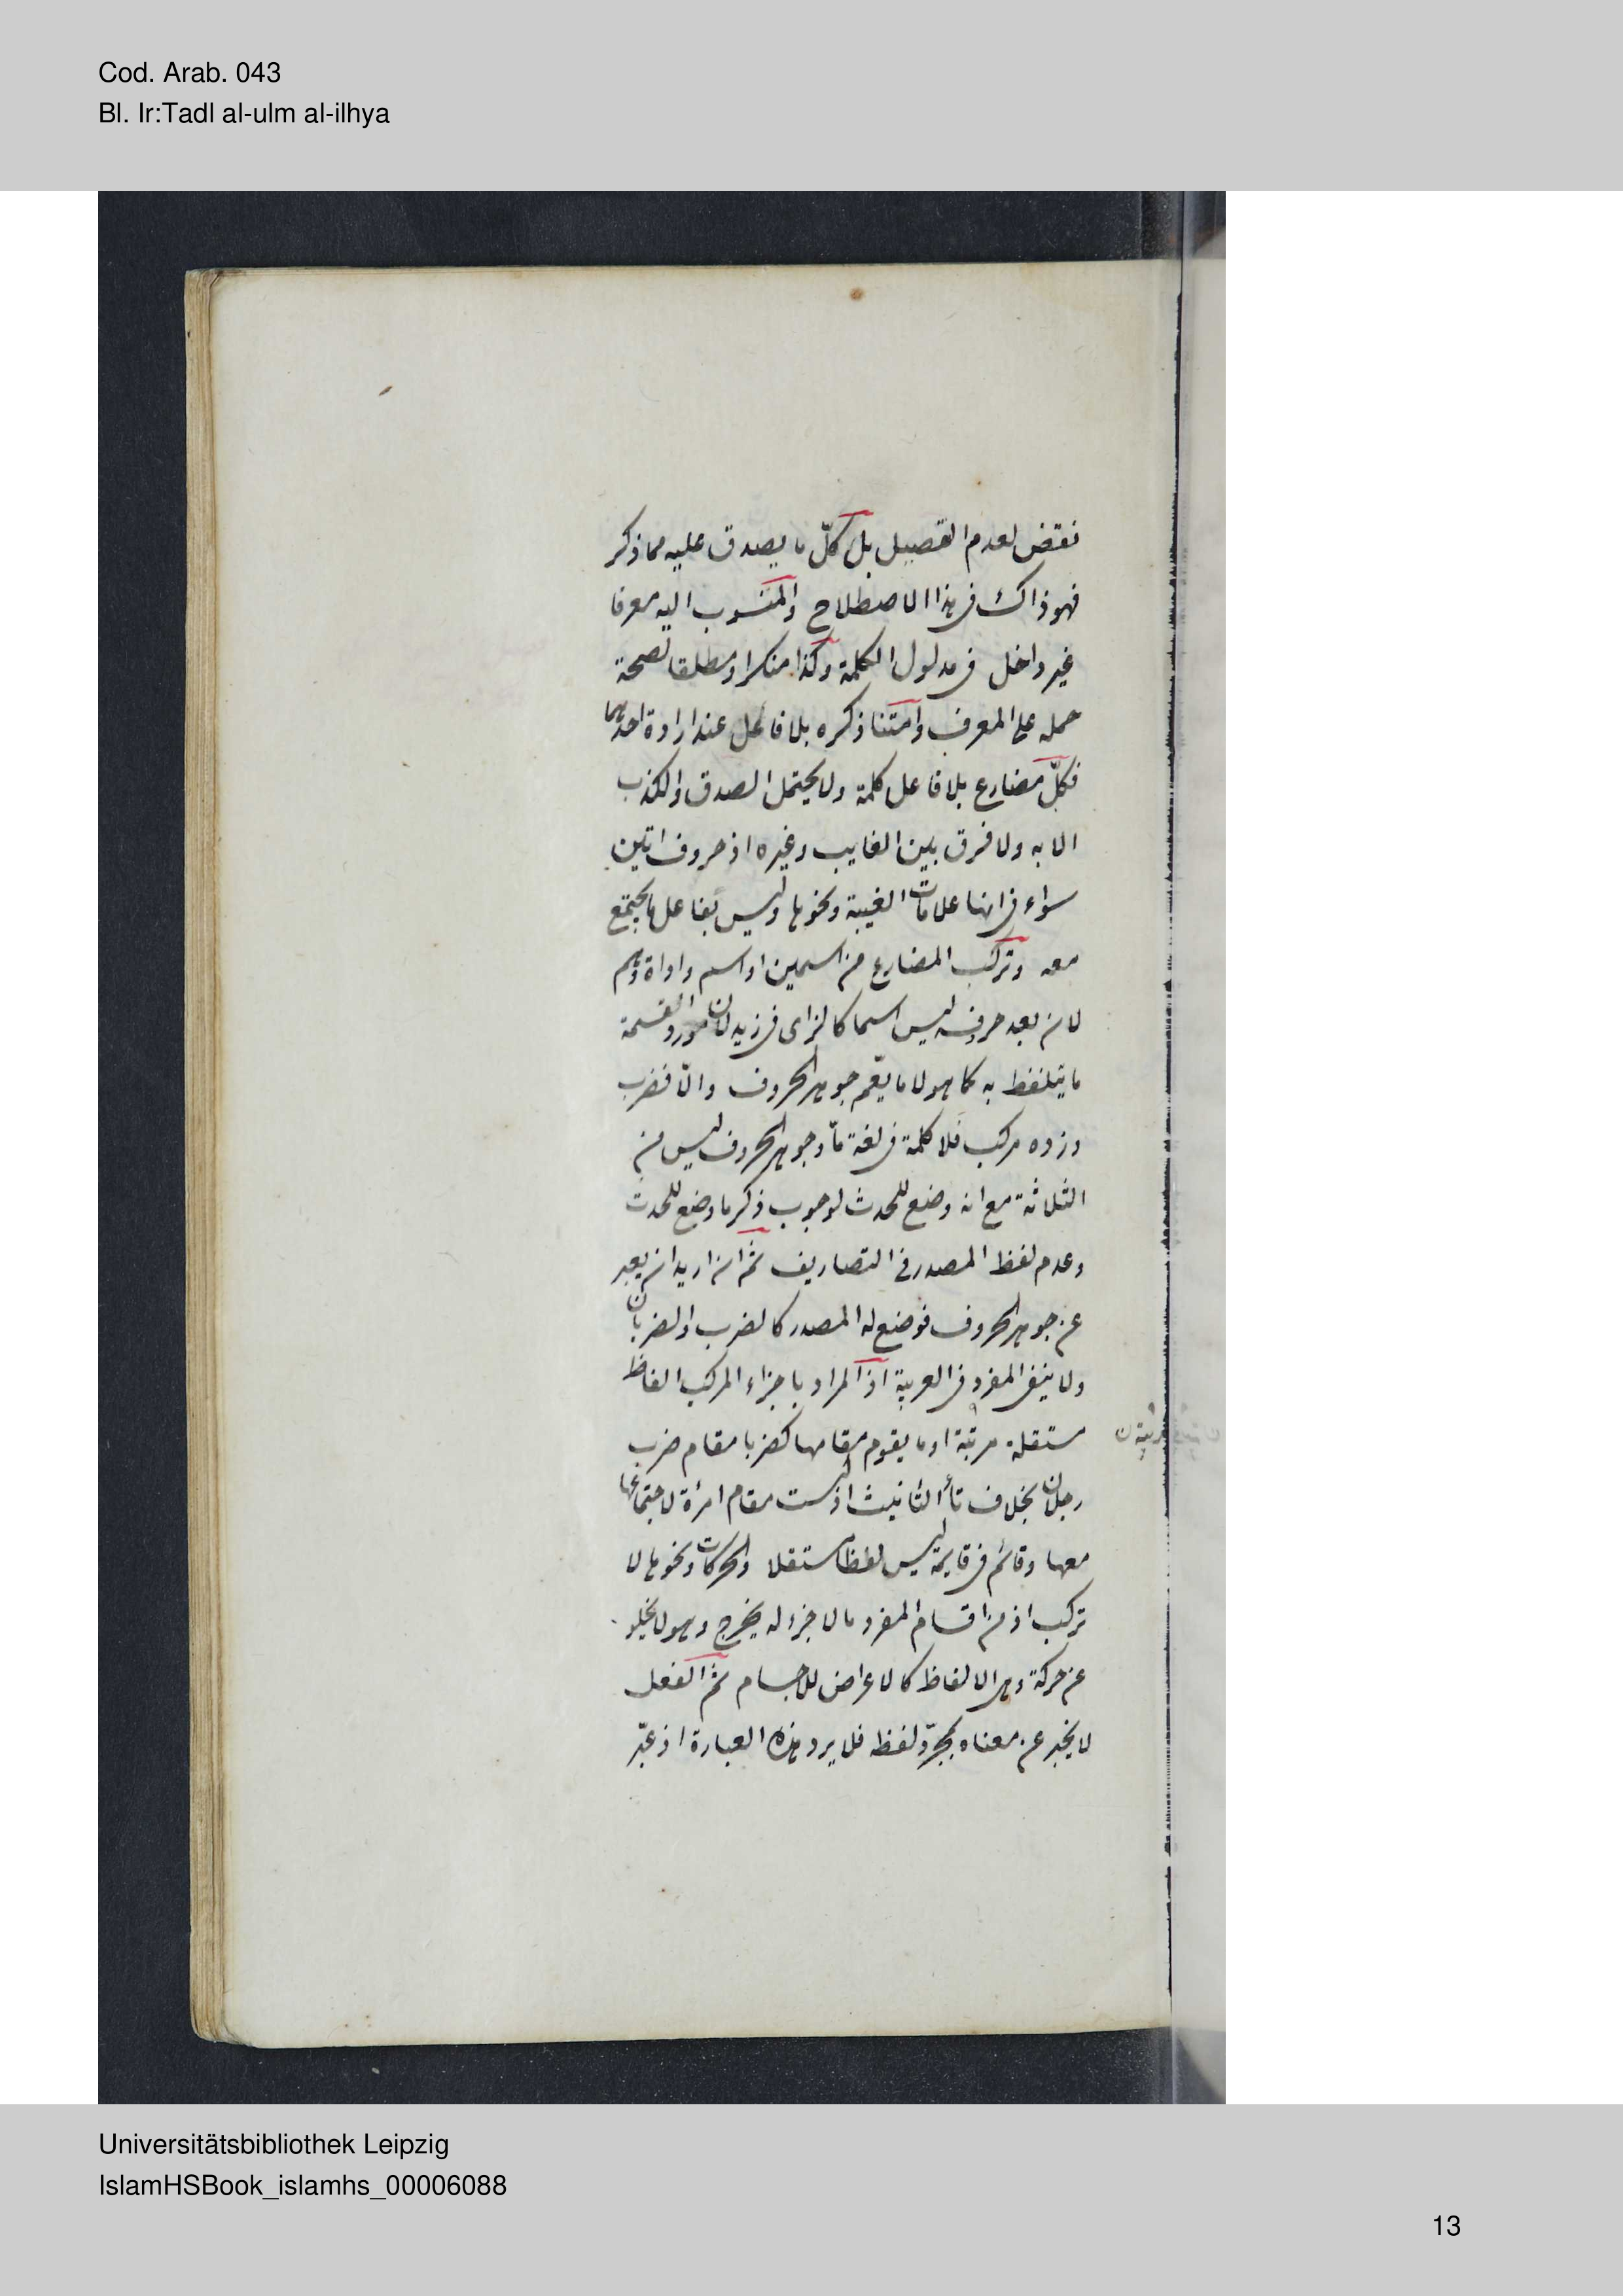 Cod. Arab. 043
Bl. Ir:Tadl al-ulm al-ilhya
نقض لعدم التحصيل بل كلّ ما يصدق عليه مما ذكر
فهو ذاك فى هذا الاصطلاح والمنسوب اليه معرفا
غير داخل فى مدلول الكلمة وكذا منكرا ومطلقا لصحة
حمله على المعرف وامتنا ذكره بلا فاعل عند ارادة احدهما
فكلّ مضارع بلا فاعل كلمة ولا يحتمل الصدق والكذب
الا به ولا فرق بين الغايب وغيره اذ حروف اتين
سواء فى انها علامات الغيبة ونحوها وليس بفاعل ما يجتمع
معه وتركب المضارع من اسمين او اسم واداة وهم
لان بعد حروفه ليس اسما كالزاى فى زيد لان مورد القسمة
ما يتلفظ به كما هو لا ما يعم جوهر الحروف والّا فضرب
وزده مركب فلا كلمة فى لغة مّا وجوهر الحروف ليس من
الثلاثة مع انه وضع للحدث لوجوب ذكر ما وضع للحدث
وعدم لفظ المصدر فى التصاريف ثم ان اريد ان يعبر
عن جوهر الحروف فوضع له المصدر كالضرب والضربان
ولا ينفى المفرد فى العربية اذ المراد باجزاء المركب الفاظ
مستقلة مرتبة او ما يقوم مقامها كضربا مقام ضرب
رجلان بخلاف تاء التانيث اذ ليست مقام امرأة لاجتماعها
معها وقائم فى قايمة ليس لفظا مستقلا والحركات ونحوها لا
تركب اذ من اقسام المفرد ما لا جزء له يخرج وهو لا يخلو
عن حركة وهى الالفاظ كالاعراض للاجسام ثم الفعل
لا يخبر عن معناه بمجرّد لفظه فلا يرد هذه العبارة اذ عبّر
Universitätsbibliothek Leipzig
IslamHSBook_islamhs_00006088
13